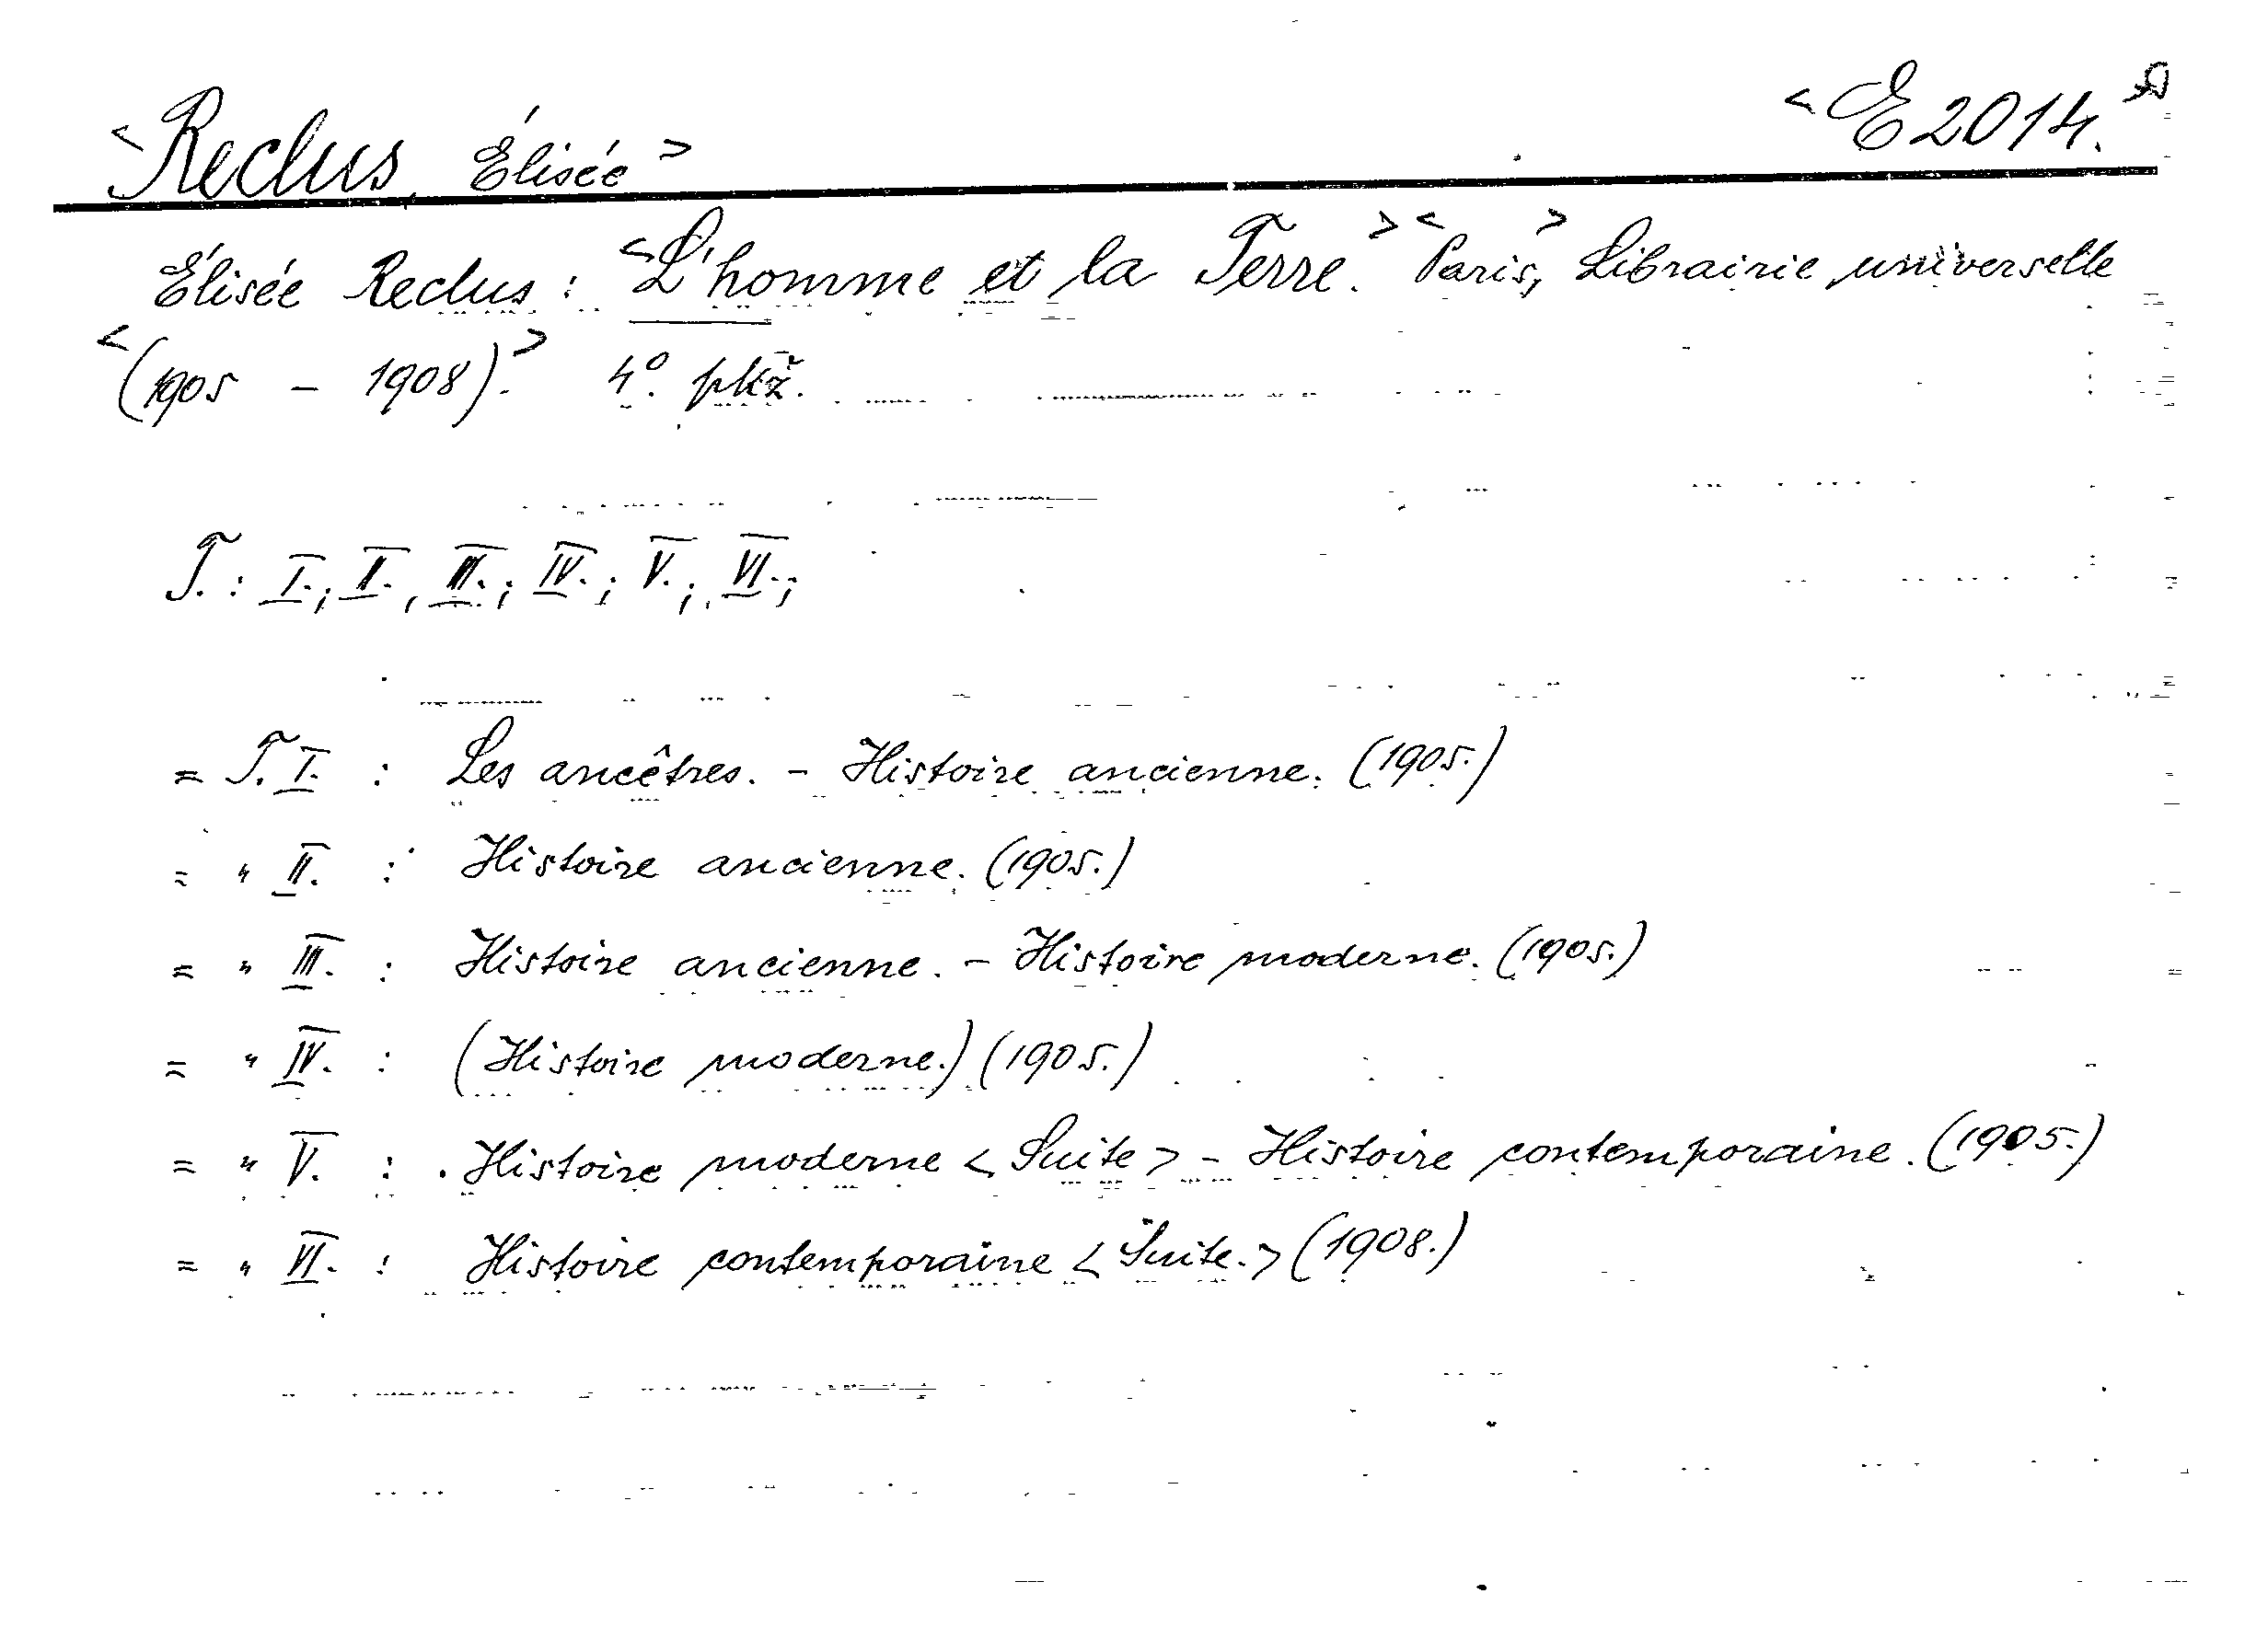 <Reclus, Élisée> <E 2014.>
Élisée Reclus: <L'homme et la Terre.> <Paris,> Librairie universelle
<(1905 - 1908).> 4°. pkž.
T.: I.; II., III.; IV.; V.; VI.;
= T. I. : Les ancêtres. - Histoire ancienne. (1905.)
= " II. : Histoire ancienne. (1905.)
= " III. : Histoire ancienne. - Histoire moderne. (1905.)
= " IV. : (Histoire moderne.) (1905.)
= " V. : Histoire moderne <Suite> - Histoire contemporaine. (1905.)
= " VI. : Histoire contemporaine <Suite.> (1908.)